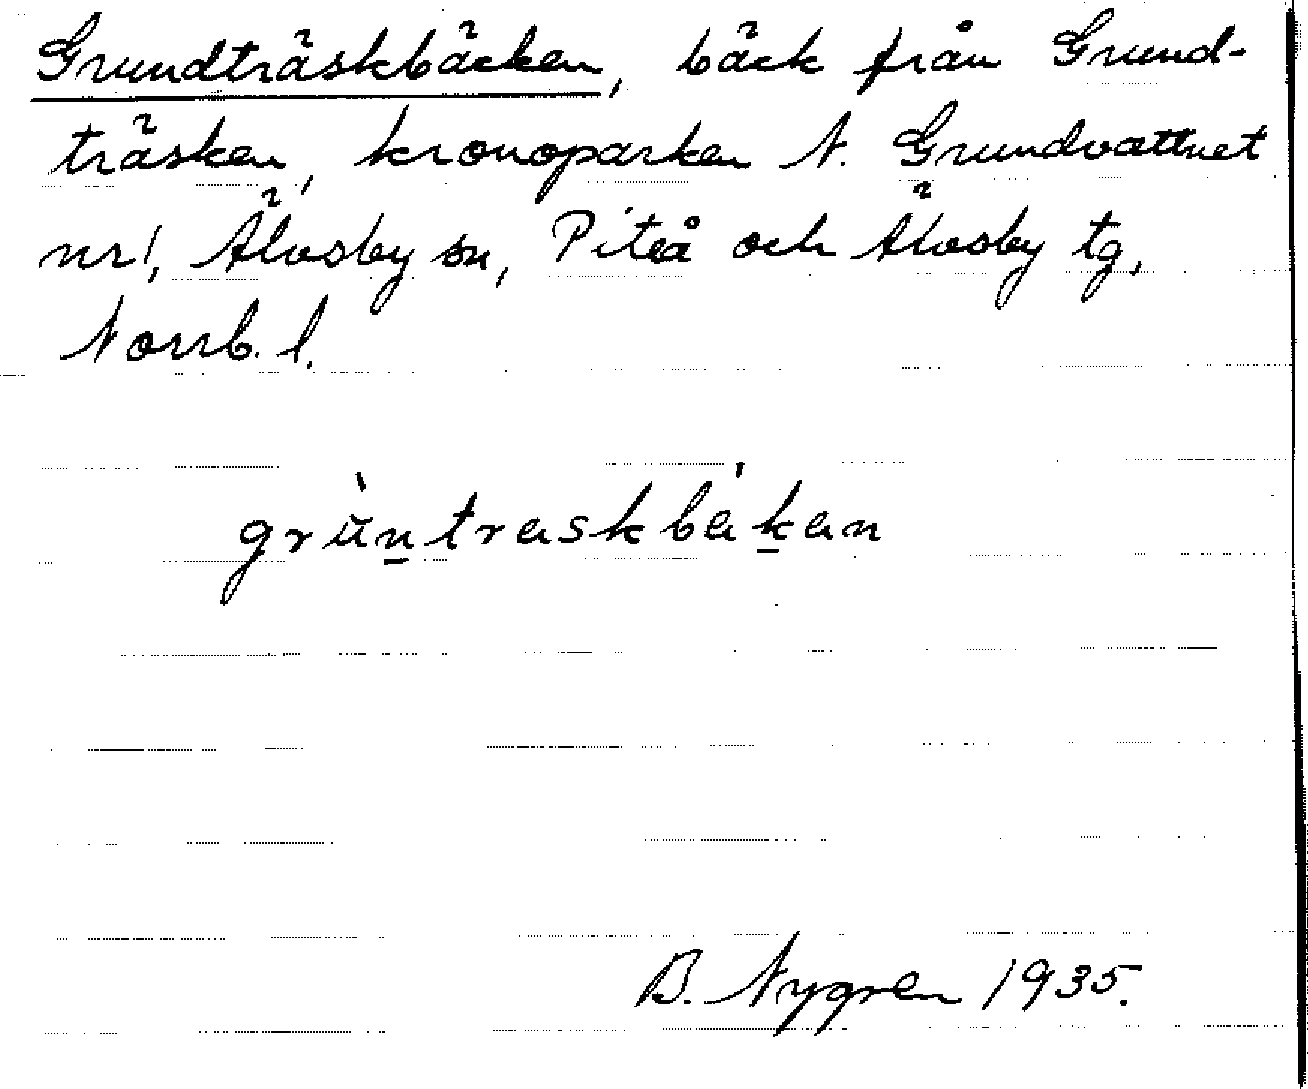 Grundträskbäcken, bäck från Grund-
träsken, kronoparken N. Grundvattnet
nr 1, Älvsby sn, Piteå och Älvsby tg,
Norrb. l.
grùntraskbákan
B. Nygren 1935.